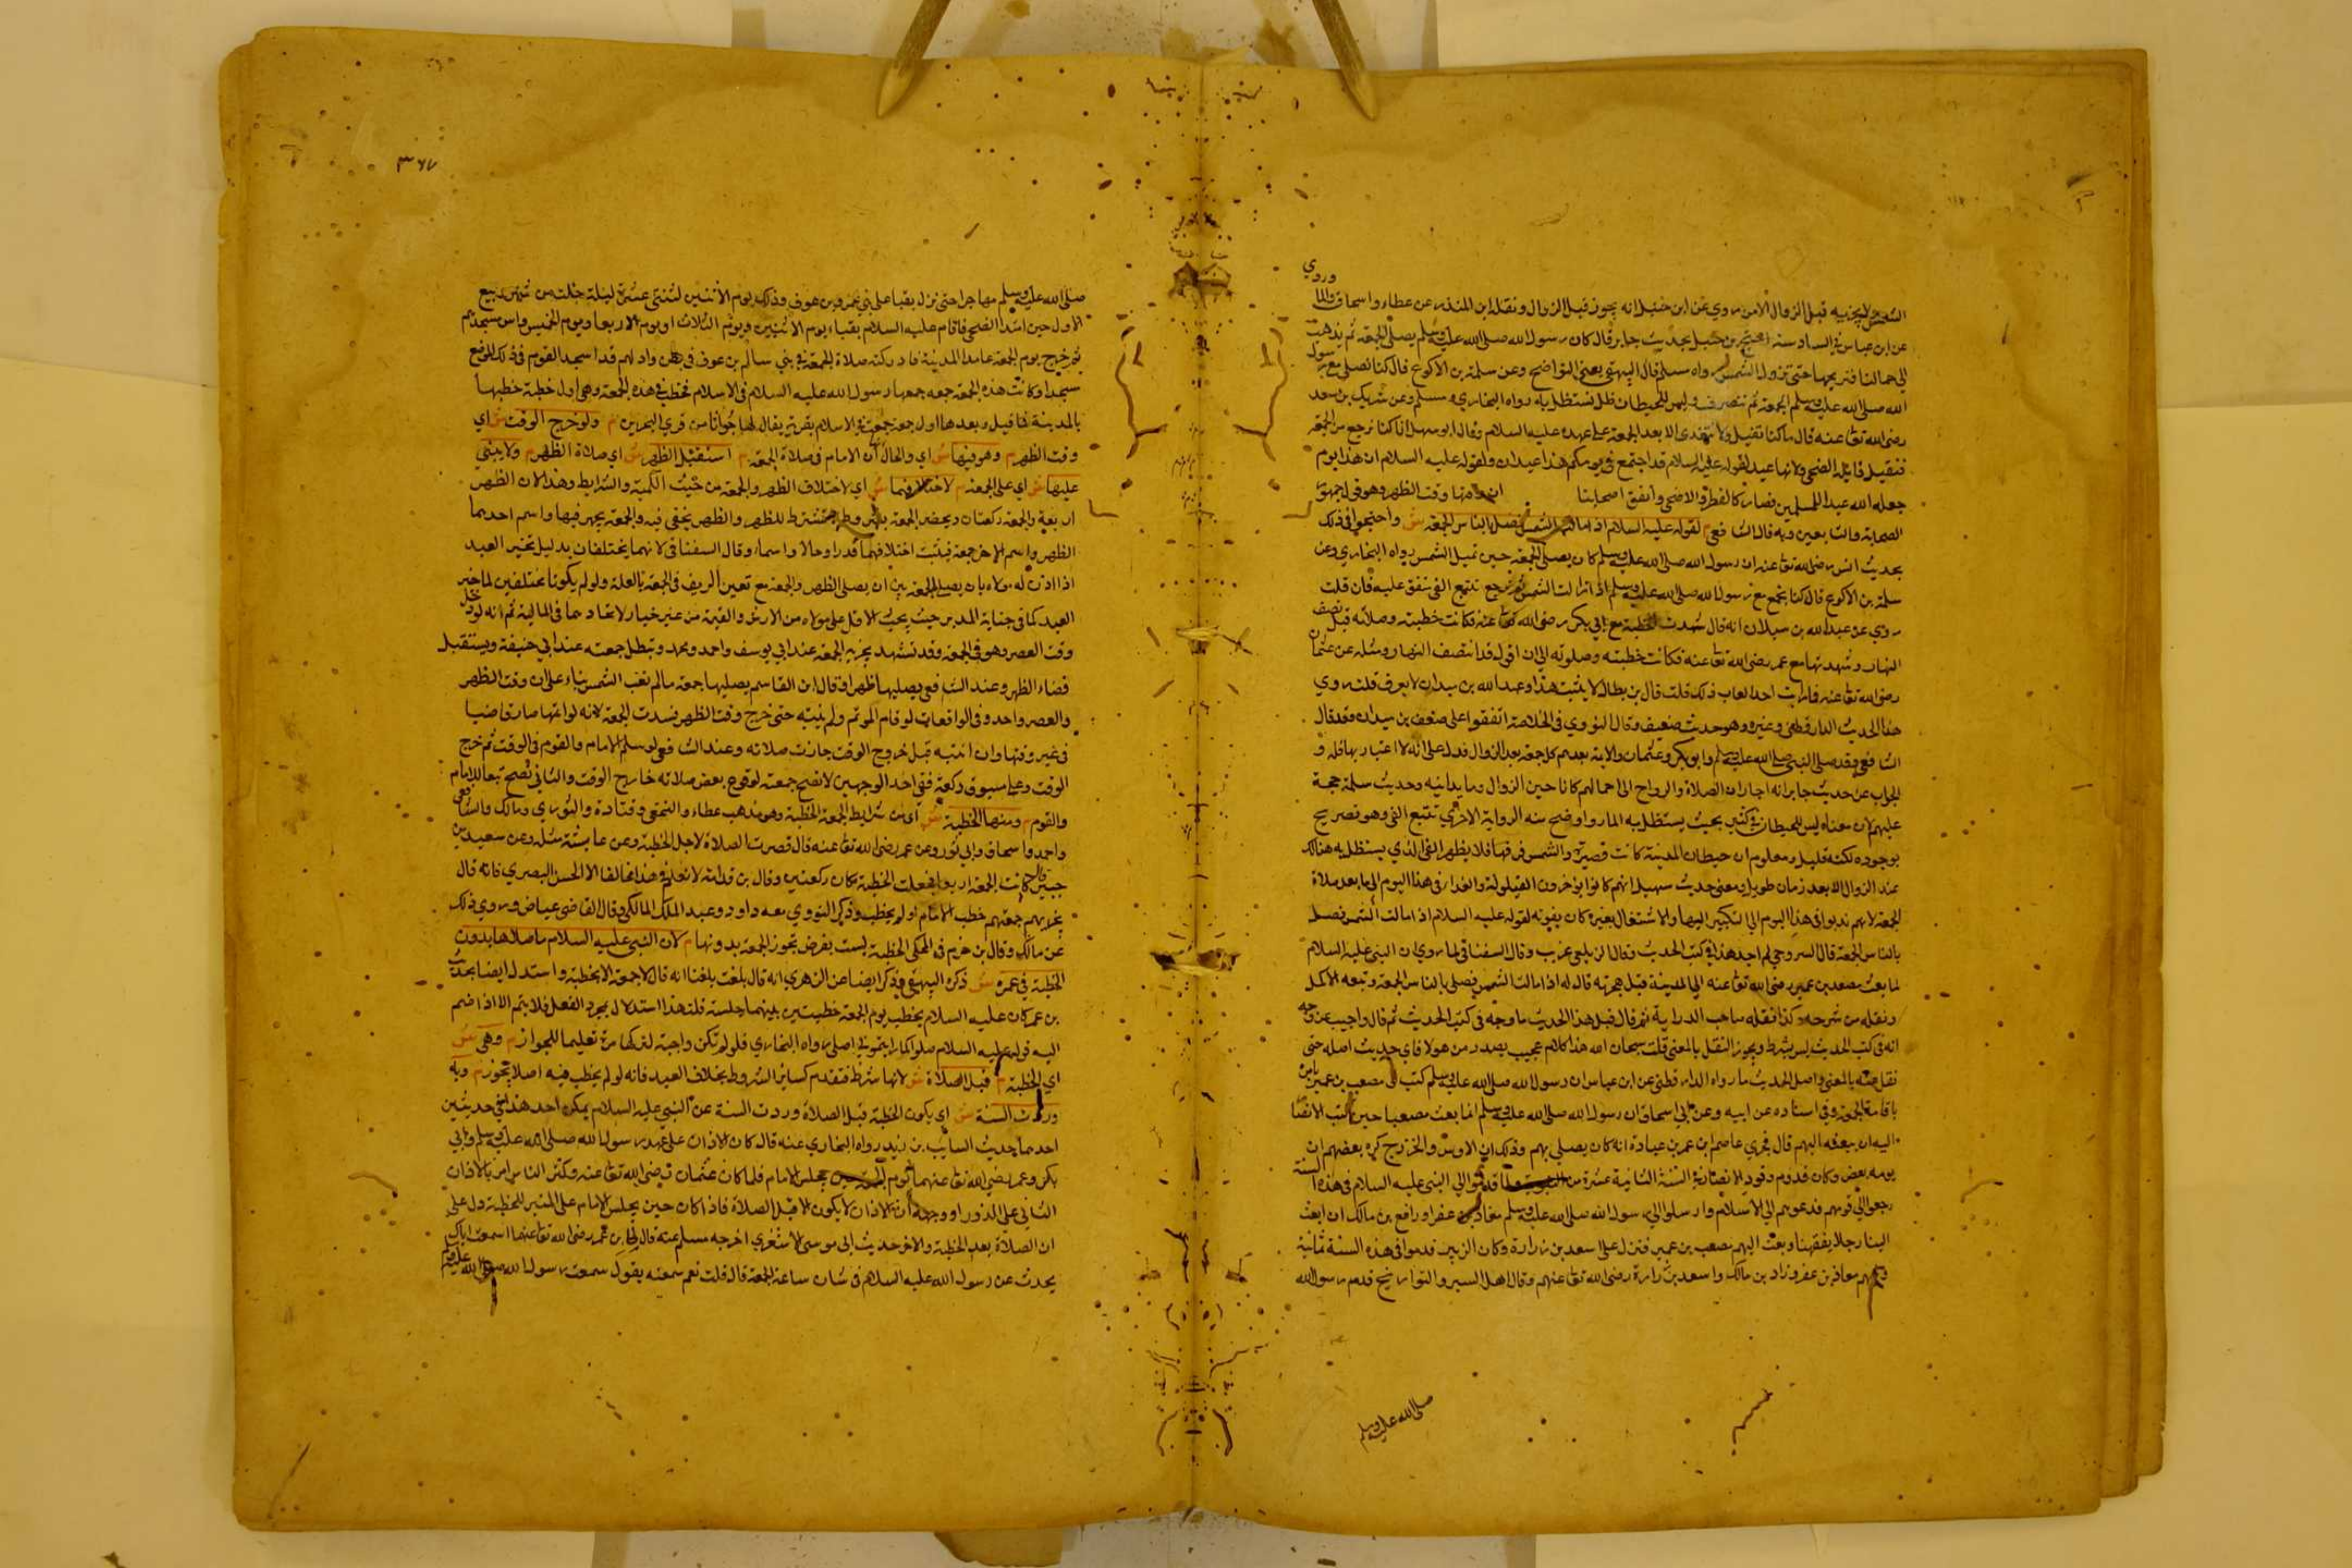 وروي
الشمس لا يجزيه قبل الزوال الا من روي عن ابن حنبل انه يجوز قبل الزوال ونقله ابن المنذر عن عطاء واسحاق
عن ابن عباس في السادسة احتج بن حنبل بحديث جابر قال كان رسول الله صلى الله عليه وسلم يصلي الجمعة ثم نذهب
الى جمالنا فنريحها حتى تزول الشمس رواه مسلم قال البيهقي يعني النواضح وعن سلمة بن الاكوع قال كنا نصلي مع رسول
الله صلى الله عليه وسلم الجمعة ثم ننصرف وليس للحيطان ظل نستظل به رواه البخاري ومسلم وعن سهل بن سعد
رضي الله تعا عنه قال ما كنا نقيل ولا نتغدى الا بعد الجمعة على عهده عليه السلام وقال ابو سهل انا كنا نرجع من الجمعة
فنقيل قائلة الضحى ولانها عيد لقوله عليه السلام قد اجتمع في يومكم هذا عيدان ولقوله عليه السلام ان هذا يوم
جعله الله عيدا للمسلمين فصار كالفطر والاضحى واتفق اصحابنا ان وقتها وقت الظهر وهو قول جمهور
الصحابة والتابعين وبه قال الشافعي م لقوله عليه السلام اذا مالت الشمس فصل بالناس الجمعة ش واحتجوا في ذلك
بحديث انس رضي الله تعا عنه ان رسول الله صلى الله عليه وسلم كان يصلي الجمعة حين تميل الشمس رواه البخاري وعن
سلمة بن الاكوع قال كنا نجمع مع رسول الله صلى الله عليه وسلم اذا زالت الشمس ثم نرجع نتتبع الفي متفق عليه فان قلت
روي عن عبد الله بن سيلان انه قال شهدت الخطبة مع ابي بكر رضي الله تعا عنه فكانت خطبته وصلاته قبل نصف
النهار وشهدتها مع عمر رضي الله تعا عنه فكانت خطبته وصلوته الى ان اقول قد انتصف النهار ومثله عن عثمان
رضي الله تعا عنه فما رايت احدا عاب ذلك قلت قال بن بطال لا يثبت هذا وعبد الله بن سيدان لا يعرف قلت روي
هذا الحديث الدارقطني وغيره وهو حديث ضعيف وقال النووي في الخلاصة اتفقوا على ضعف بن سيدان وقد قال
الشافعي وقد صلى النبي صلى الله عليه وسلم وابو بكر وعثمان والايمة بعدهم كل جمعة بعد الزوال فدل على انه لا اعتبار بما قبله و
الجواب عن حديث جابر انه اخبار ان الصلاة والرواح الى جمالهم كانا حين الزوال وما يدانيه وحديث سلمة حجة
عليهم لان معناه ليس للحيطان في كثير بحيث يستظل به المار واوضح منه الرواية الاخرى نتتبع الفي وهو تصريح
بوجوده لكنه قليل ومعلوم ان حيطان المدينة كانت قصيرة والشمس فوقها فلا يظهر الفي الذي يستظل به هنالك
عند الزوال الا بعد زمان طويل ومعنى حديث سهيل انهم كانوا يؤخرون القيلولة والغدا في هذا اليوم الى ما بعد صلاة
الجمعة لانهم ندبوا في هذا اليوم الى التكبير اليها والاشتغال بغيره كان يفوته لقوله عليه السلام اذا مالت الشمس فصل
بالناس الجمعة قال السروجي لم اجد هذا في كتب الحديث وقال الزيلعي غريب وقال السغناقي لما روي ان النبي عليه السلام
لما بعث مصعب بن عمير رضي الله تعا عنه الى المدينة قبل هجرته قال له اذا مالت الشمس فصلي بالناس الجمعة وتبعه الاكمل
ونقله من شرحه وكذا نقله صاحب الدراية ثم قال قبل هذا الحديث ما وجد في كتب الحديث ثم قال واجيب عن وجه
انه في كتب الحديث ليس بشرط ويجوز النقل بالمعنى قلت سبحان الله هذا كلام عجيب يصدر من هولا فاي حديث اصله حتى
نقل منه بالمعنى واصل الحديث ما رواه الدارقطني عن ابن عباس ان رسول الله صلى الله عليه وسلم كتب الى مصعب بن عمير يامره
باقامة الجمعة وفي اسناده عن ابيه وعن ابي اسحاق ان رسول الله صلى الله عليه وسلم انما بعث مصعبا حين كتب الانصار
اليه ان يبعثه اليهم قال فحدثني عاصم ابن عمر بن عبادة انه كان يصلي بهم وذلك ان الاوس والخزرج كره بعضهم ان
يومه بعض وكان قدوم وفود الانصار في السنة الثانية عشرة من قدموا الى النبي عليه السلام في هذه السنة
رجعوا الى قومهم فدعوهم الى الاسلام وارسلوا الى رسول الله صلى الله عليه وسلم معاذ بن عفرا ورافع بن مالك ان ابعث
الينا رجلا يفقهنا وبعث اليهم مصعب بن عمير فنزل على اسعد بن زرارة وكان الزبير قدموا في هذه السنة ثمانية
ومنهم معاذ بن عفر وزاد بن مالك واسعد بن زرارة رضي الله تعا عنهم وقال اهل السير والتواريخ قدم رسول الله
صلى الله عليه وسلم
٣٦٧
صلى الله عليه وسلم مهاجرا حتى نزل بقبا على بني عمرو بن عوف وذلك يوم الاثنين لثنتي عشرة ليلة خلت من شهر ربيع
الاول حين اشتد الضحى فاقام عليه السلام بقباء يوم الاثنين ويوم الثلاث ويوم الاربعا ويوم الخميس واسس مسجدهم
ثم خرج يوم الجمعة عامدا المدينة فادركته صلاة الجمعة في بني سالم بن عوف في بطن واد لهم قد اتخذ القوم في ذلك الموضع
مسجدا وكانت هذه الجمعة جمعه جمعها رسول الله عليه السلام في الاسلام فخطب في هذه الجمعة وهي اول خطبة خطبها
بالمدينة فما قيل وبعدها اول جمعة جمعت في الاسلام بقرية يقال لها جواثا من قرى البحرين م ولو خرج الوقت ش اي
وقت الظهر م وهو فيها ش اي والحال ان الامام في صلاة الجمعة م استقبل الظهر ش اي صلاة الظهر م ولا يبني
عليها ش اي على الجمعة م لاختلافهما ش اي لاختلاف الظهر والجمعة من حيث الكمية والشرايط وهذا لان الظهر
اربعة والجمعة ركعتان ويحضر الجمعة بشروط لا تشترط للظهر والظهر يخفى فيه والجمعة يجهر فيها واسم احدهما
الظهر واسم الاخر جمعة فيثبت اختلافهما قدرا وحالا واسما وقال السغناقي لانهما يختلفان بدليل تخير العبد
اذا اذن له مولاه بان يصلي الجمعة بين ان يصلي الظهر والجمعة مع تعين الريف في الجمعة بالعلة ولو لم يكونا مختلفين لما خير
العبد كما في جناية المدبر حيث يجب الاقل على مولاه من الارش والقيمة من غير خيار لاتحادهما في المالية ثم انه لو دخل
وقت العصر وهو في الجمعة وقد تشهد يجزيه الجمعة عند ابي يوسف واحمد ومحمد وتبطل جمعته عند ابي حنيفة ويستقبل
قضاء الظهر وعند الشافعي يصليها ظهرا وقال ابن القاسم يصليها جمعة ما لم تغب الشمس بناء على ان وقت الظهر
والعصر واحد وفي الواقعات لو قام الموتم ولم ينتبه حتى خرج وقت الظهر فسدت الجمعة لانه لو اتمها صار قاضيا
في غير وقتها وان انتبه قبل خروج الوقت جازت صلاته وعند الشافعي لو سلم الامام والقوم في الوقت ثم خرج
الوقت وعلى مسبوق ركعة ففي احد الوجهين لا تصح جمعته لوقوع بعض صلاته خارج الوقت والثاني تصح تبعا للامام
والقوم م ومنها الخطبة ش اي من شرايط الجمعة الخطبة وهو مذهب عطاء والنخعي وقتادة والثوري ومالك والشافعي
واحمد واسحاق وابي ثور وعن عمر رضي الله تعا عنه قال قصرت الصلاة لاجل الخطبة وعن عايشة مثله وعن سعيد بن
جبير قال كانت الجمعة اربعا فجعلت الخطبة مكان ركعتين وقال بن قدامة لا نعلم في هذا مخالفا الا الحسن البصري فانه قال
يجزيهم جمعتهم خطب الامام او لم يخطب وذكر النووي معه داود وعبد الملك المالكي وقال القاضي عياض وروي ذلك
عن مالك وقال بن حزم في المحلى الخطبة ليست بفرض تجوز الجمعة بدونها م لان النبي عليه السلام ما صلاها بدون
الخطبة في عمره ش ذكره البيهقي وذكر ايضا عن الزهري انه قال بلغنا انه قال لا جمعة الا بخطبة واستدل ايضا بحديث
بن عمر كان عليه السلام يخطب يوم الجمعة خطبتين بينهما جلسة قلت هذا استدلال بمجرد الفعل فلا يتم الا اذا ضم
اليه قوله عليه السلام صلوا كما رايتموني اصلي رواه البخاري فلو لم تكن واجبة لتركها مرة تعليما للجواز م وهي ش
اي الخطبة م قبل الصلاة ش لانها شرط فتقدم كسائر الشروط بخلاف العيد فانه لو لم يخطب فيه اصلا يجوز م وبه
وردت السنة ش اي بكون الخطبة قبل الصلاة وردت السنة عن النبي عليه السلام يمكن اخذ هذا في حديثين
احدهما حديث السايب بن يزيد رواه البخاري عنه قال كان الاذان على عهد رسول الله صلى الله عليه وسلم وابي
بكر وعمر رضي الله تعا عنهما يوم الجمعة حين يجلس الامام فلما كان عثمان رضي الله تعا عنه وكثر الناس امر بالاذان
الثاني على الزوراء ووجهه ان الاذان لا يكون الا قبل الصلاة فاذا كان حين يجلس الامام على المنبر للخطبة دل على
ان الصلاة بعد الخطبة والاخر حديث ابي موسى الاشعري اخرجه مسلم عنه قال قال لي ابن عمر رضي الله تعا عنهما اسمعت اباك
يحدث عن رسول الله عليه السلام في شان ساعة الجمعة قال قلت نعم سمعته يقول سمعت رسول الله صلى الله عليه وسلم